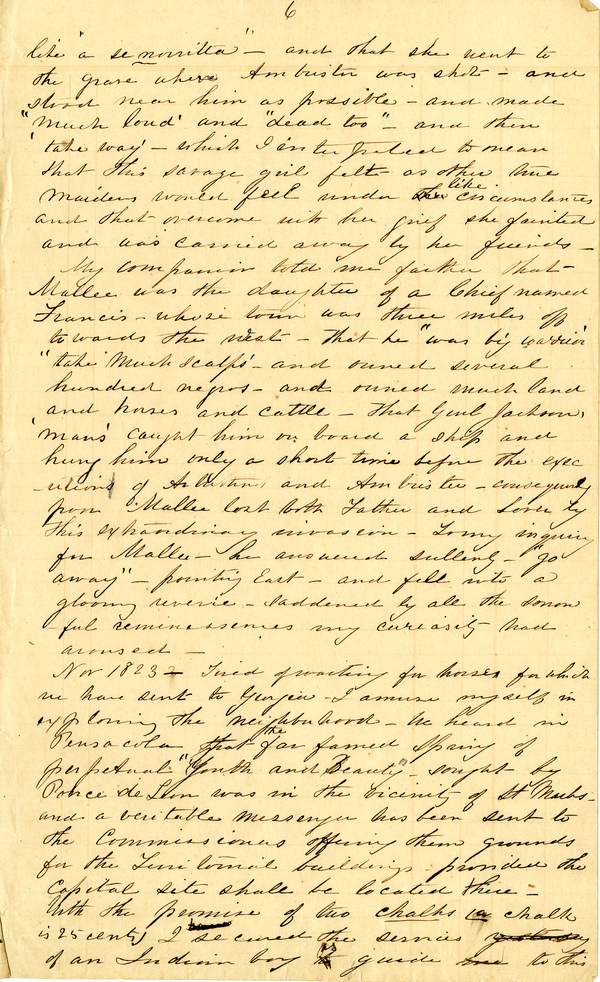 6
like "a senorritta" — and that she went to
the grave where Ambrister was shot — and
stood near him as possible — and made
"Much loud' and "dead too" — and then
'take way' — which I interpreted to mean
that this savage girl felt — as other true
maidens would feel under like circumstances
and that overcome with her grief she fainted
and was carried away by her friends —
My companion told me farther that —
Mallee was the daughter of a Chief named
Francis — whose town was three miles off
towards the West — that he "was big warrior
"take Much scalps' — and owned several
hundred negros — and owned much land
and horses and cattle — that Genl Jackson,
'mans' caught him on board a ship and
hung him only a short time before the exec
-utions of Arbuthn and Ambrister — consequently
poor Mallee lost both Father and Lover by
this extraordinary invasion — To my inquiry
for Mallee — he answered sullenly — "go
away" — pointing East — and fell into a
gloomy reverie — saddened by all the sorrow
-ful reminessenses my curiosity had
aroused —
Nov 1823 — Tired of waiting for horses for which
we have sent to Georgia — I amuse myself in
exploring the neighbuhood — We heard in
Pensacola that the far famed Spring of
perpetual "Youth and Beauty" — sought by
Ponce de Leon was in the vicinity of St Marks —
and a veritable messenger has been sent to
the Commissioners offering them grounds
for the Territorial buildings provided the
Capital site shall be located there —
With the promise of two chalks (a chalk
is 25 cents) I secured the services yesterday
of an Indian boy to guide me to this